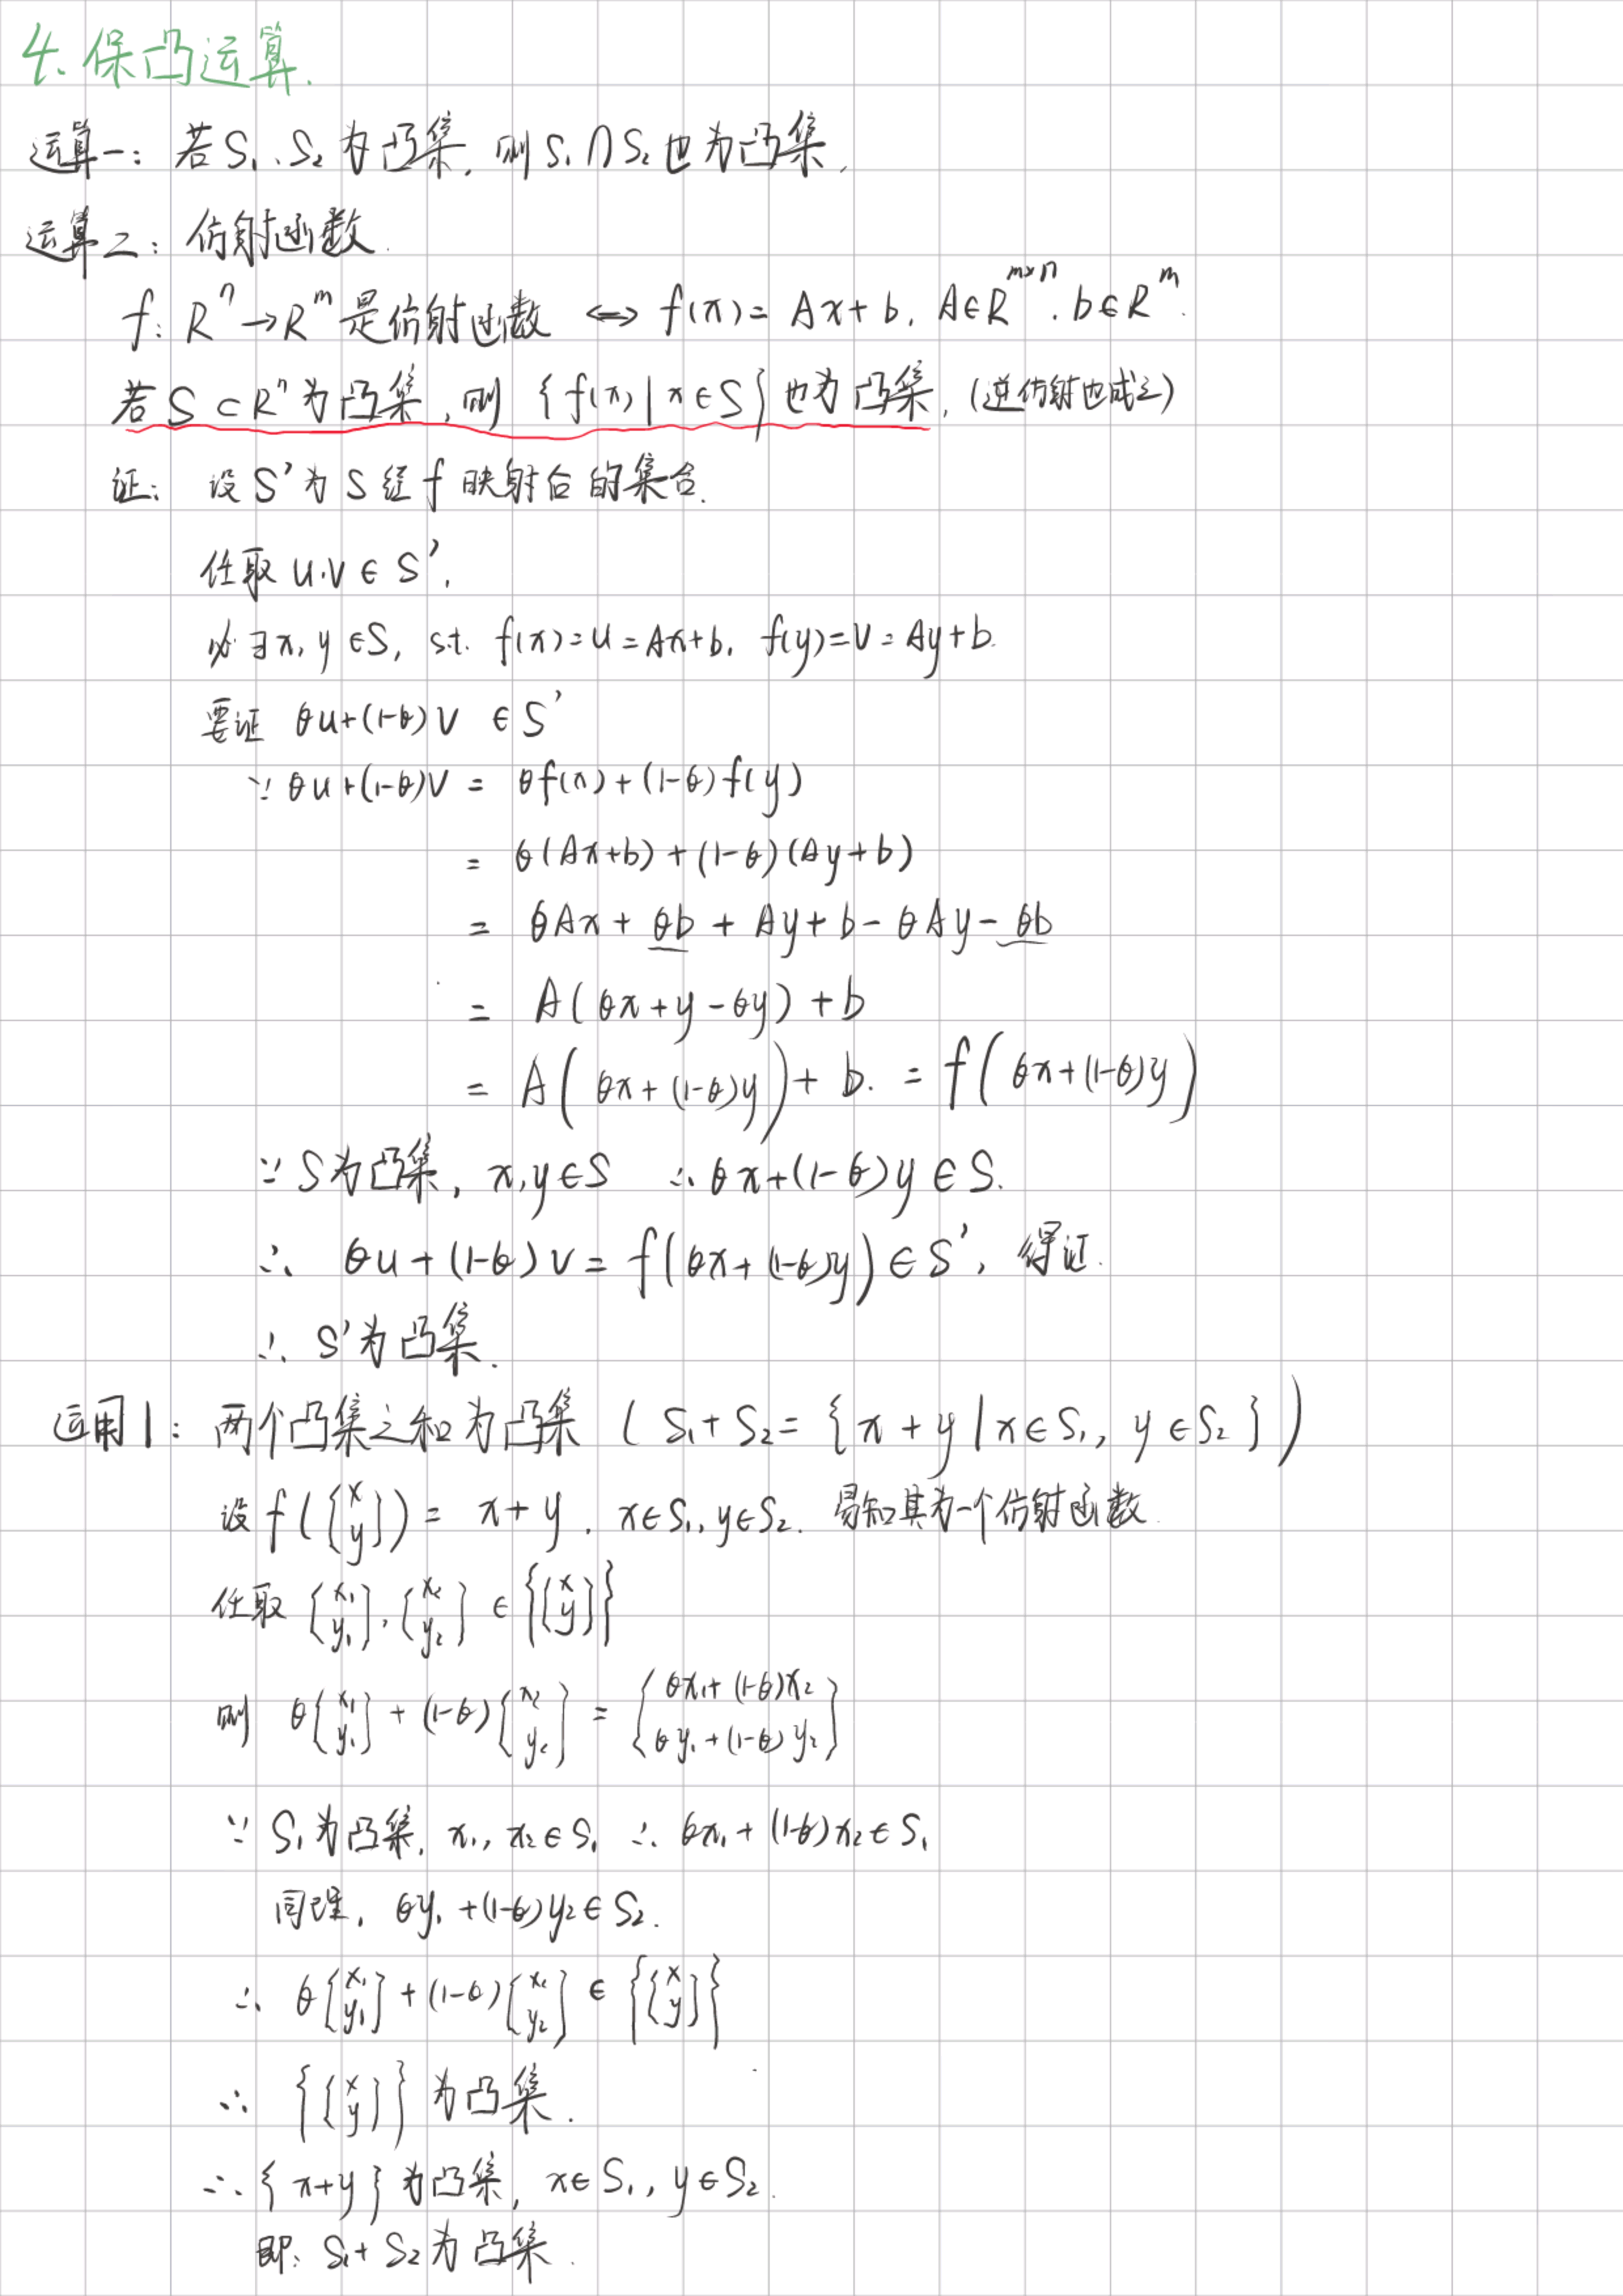 4. 保凸运算.
运算一: 若 S₁、S₂ 为凸集, 则 S₁∩S₂ 也为凸集.
运算二: 仿射函数.
f: Rⁿ→Rᵐ 是仿射函数 ⇔ f(x)= Ax+b, A∈R^{m×n}, b∈Rᵐ.
若 S⊂Rⁿ 为凸集, 则 {f(x)|x∈S} 也为凸集, (逆仿射也成立)
证: 设 S' 为 S 经 f 映射后的集合.
任取 u.v ∈ S',
必∃x, y ∈S, s.t. f(x)=u=Ax+b, f(y)=v=Ay+b.
要证 θu+(1-θ)v ∈ S'
∵ θu+(1-θ)v = θf(x)+(1-θ)f(y)
= θ(Ax+b)+(1-θ)(Ay+b)
= θAx+θb+Ay+b-θAy-θb
= A(θx+y-θy)+b
= A(θx+(1-θ)y)+b. = f(θx+(1-θ)y)
∵ S为凸集, x,y∈S ∴ θx+(1-θ)y∈S.
∴ θu+(1-θ)v = f(θx+(1-θ)y)∈S', 得证.
∴ S'为凸集.
运用1: 两个凸集之和为凸集 (S₁+S₂={x+y|x∈S₁, y∈S₂})
设 f([x y]) = x+y, x∈S₁, y∈S₂. 易知其为一个仿射函数.
任取 [x₁ y₁], [x₂ y₂] ∈ {[x y]}
则 θ[x₁ y₁]+(1-θ)[x₂ y₂] = [θx₁+(1-θ)x₂ θy₁+(1-θ)y₂]
∵ S₁为凸集, x₁, x₂∈S₁ ∴ θx₁+(1-θ)x₂∈S₁
同理, θy₁+(1-θ)y₂∈S₂.
∴ θ[x₁ y₁]+(1-θ)[x₂ y₂] ∈ {[x y]}
∴ {[x y]} 为凸集.
∴ {x+y} 为凸集, x∈S₁, y∈S₂.
即: S₁+S₂ 为凸集.